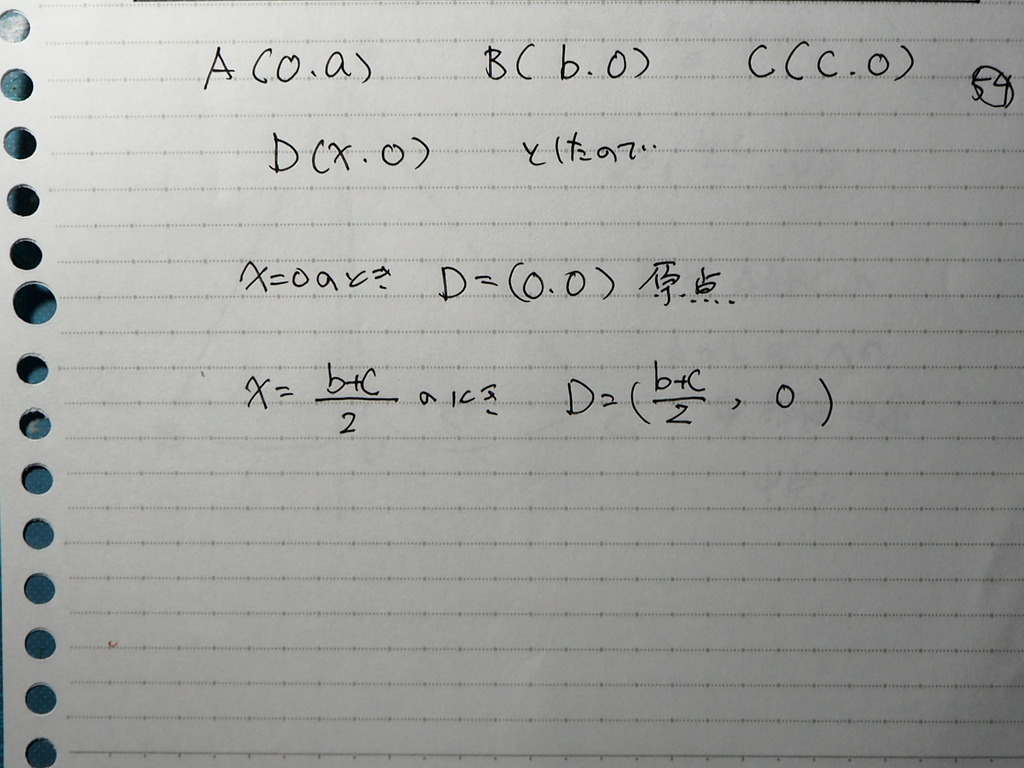 A(0.a) B(b.0) C(c.0)
54
D(x.0) としたので…
x=0のとき D=(0.0) 原点
x= b+c/2 のとき D=(b+c/2, 0)